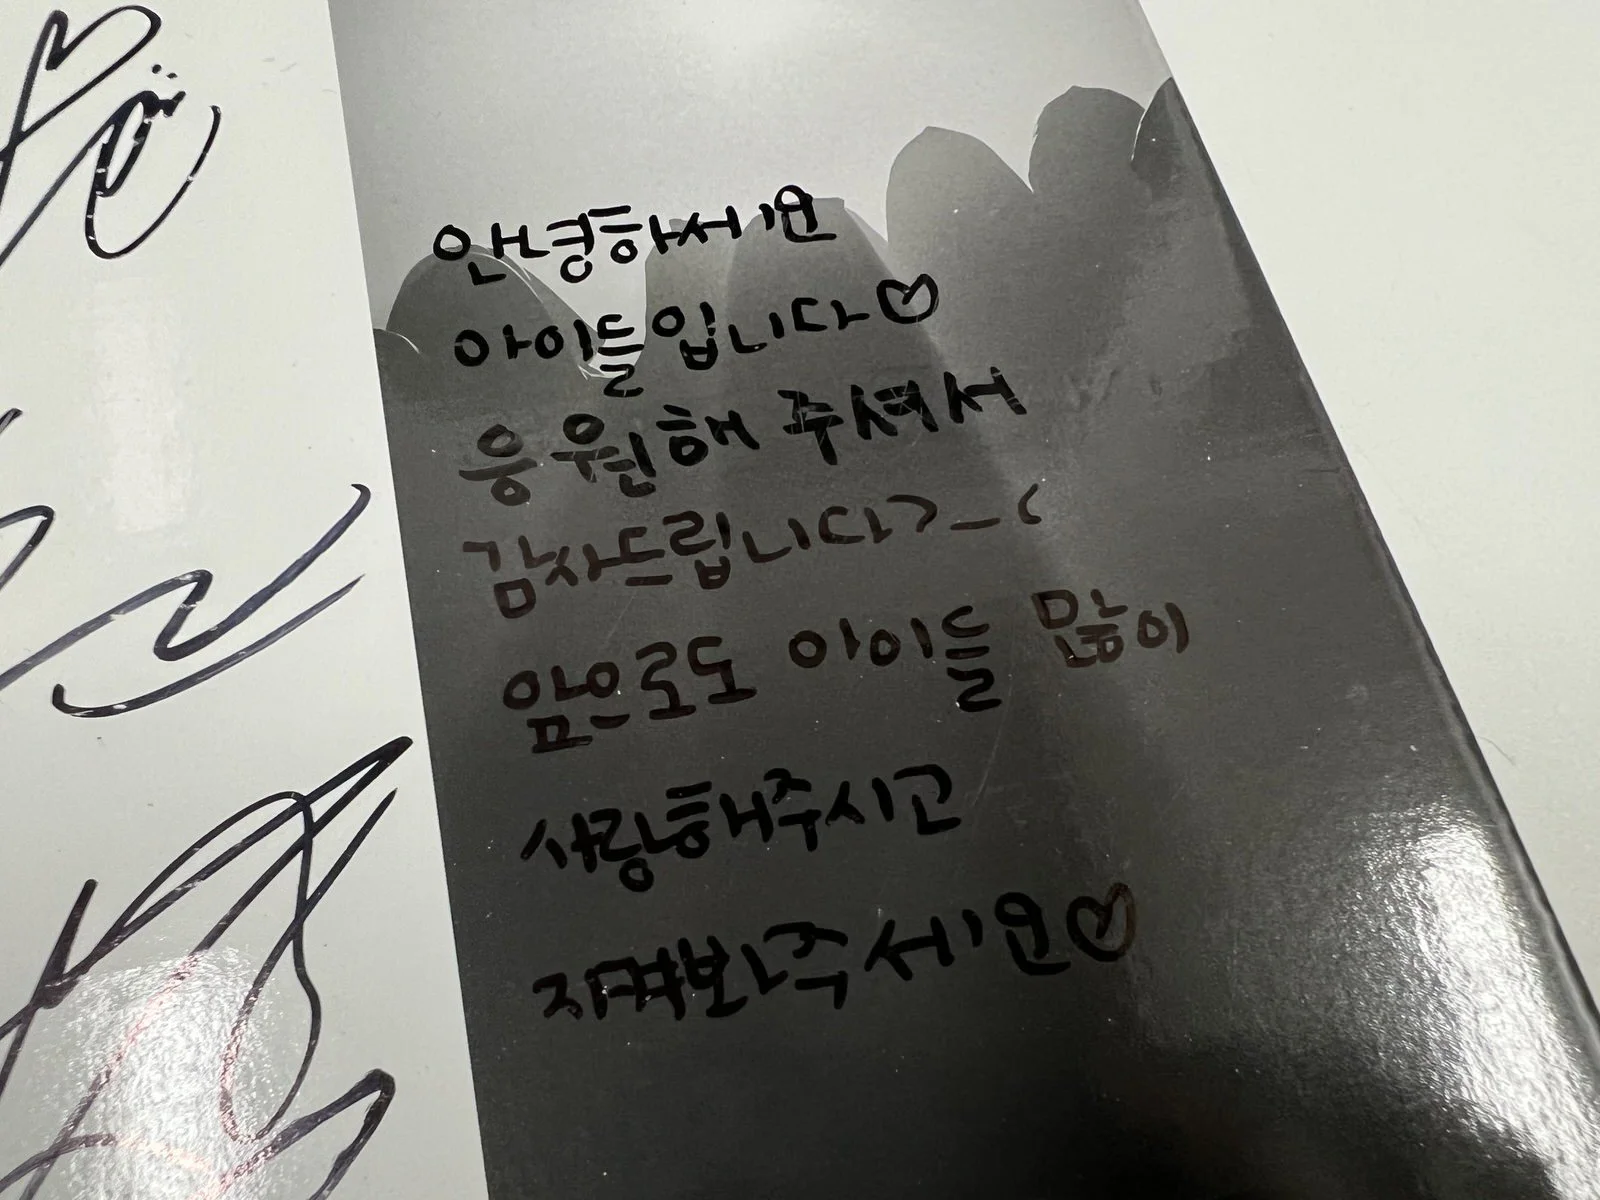 안녕하세요
아이들입니다♡
응원해 주셔서
감사드립니다>_<
앞으로도 아이들 많이
사랑해주시고
지켜봐주세요♡